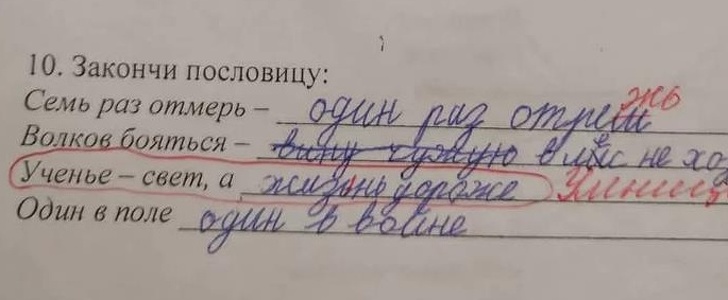 10. Закончи пословицу:
Семь раз отмерь – один раз отреж жь
Волков бояться – вину чужую в лес не хо
Ученье – свет, а жизнь дороже Умниц
Один в поле один в войне